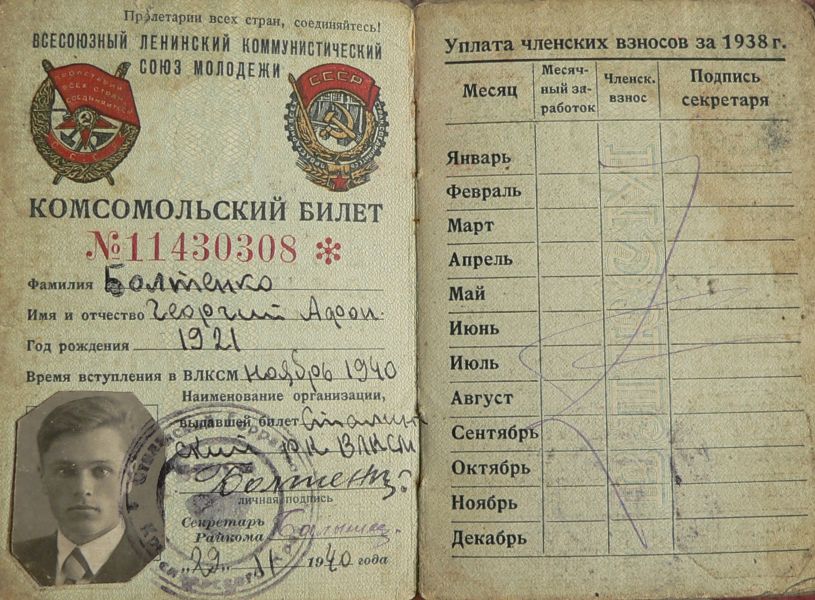 Пролетарии всех стран, соединяйтесь!
ВСЕСОЮЗНЫЙ ЛЕНИНСКИЙ КОММУНИСТИЧЕСКИЙ
СОЮЗ МОЛОДЕЖИ
СССР
КОМСОМОЛЬСКИЙ БИЛЕТ
№11430308 *
Фамилия Болтенко
Имя и отчество Георгий
Год рождения 1921
Время вступления в ВЛКСМ ноябрь 1940
Наименование организации,
выдавшей билет Сталин
ский РК ВЛКСМ
личная подпись
Секретарь
Райкома
„29" 11 1940 года
Уплата членских взносов за 1938 г.
Месяц
Месяч-
ный за-
работок
Членск.
взнос
Подпись
секретаря
Январь
Февраль
Март
Апрель
Май
Июнь
Июль
Август
Сентябрь
Октябрь
Ноябрь
Декабрь